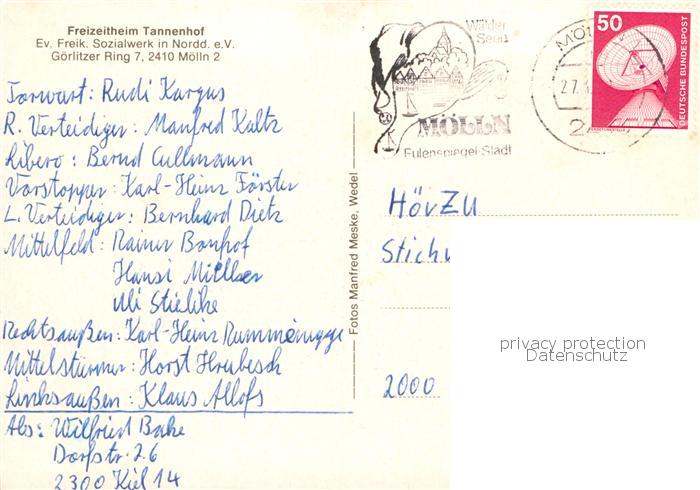 Freizeitheim Tannenhof
Ev. Freik. Sozialwerk in Nordd. e.V.
Görlitzer Ring 7, 2410 Mölln 2
Torwart: Rudi Kargus
R. Verteidiger: Manfred Kaltz
Libero: Bernd Cullmann
Vorstopper: Karl-Heinz Förster
L. Verteidiger: Bernhard Dietz
Mittelfeld: Rainer Bonhof
Hansi Müller
Uli Stielike
Rechtsaußen: Karl-Heinz Rummenigge
Mittelstürmer: Horst Hrubesch
Linksaußen: Klaus Allofs
Abs: Wilfried Bake
Dorfstr. 26
2300 Kiel 14
Fotos Manfred Meske, Wedel
MÖLLN
Eulenspiegel-Stadt
50
DEUTSCHE BUNDESPOST
HÖRZU
2000
privacy protection
Datenschutz